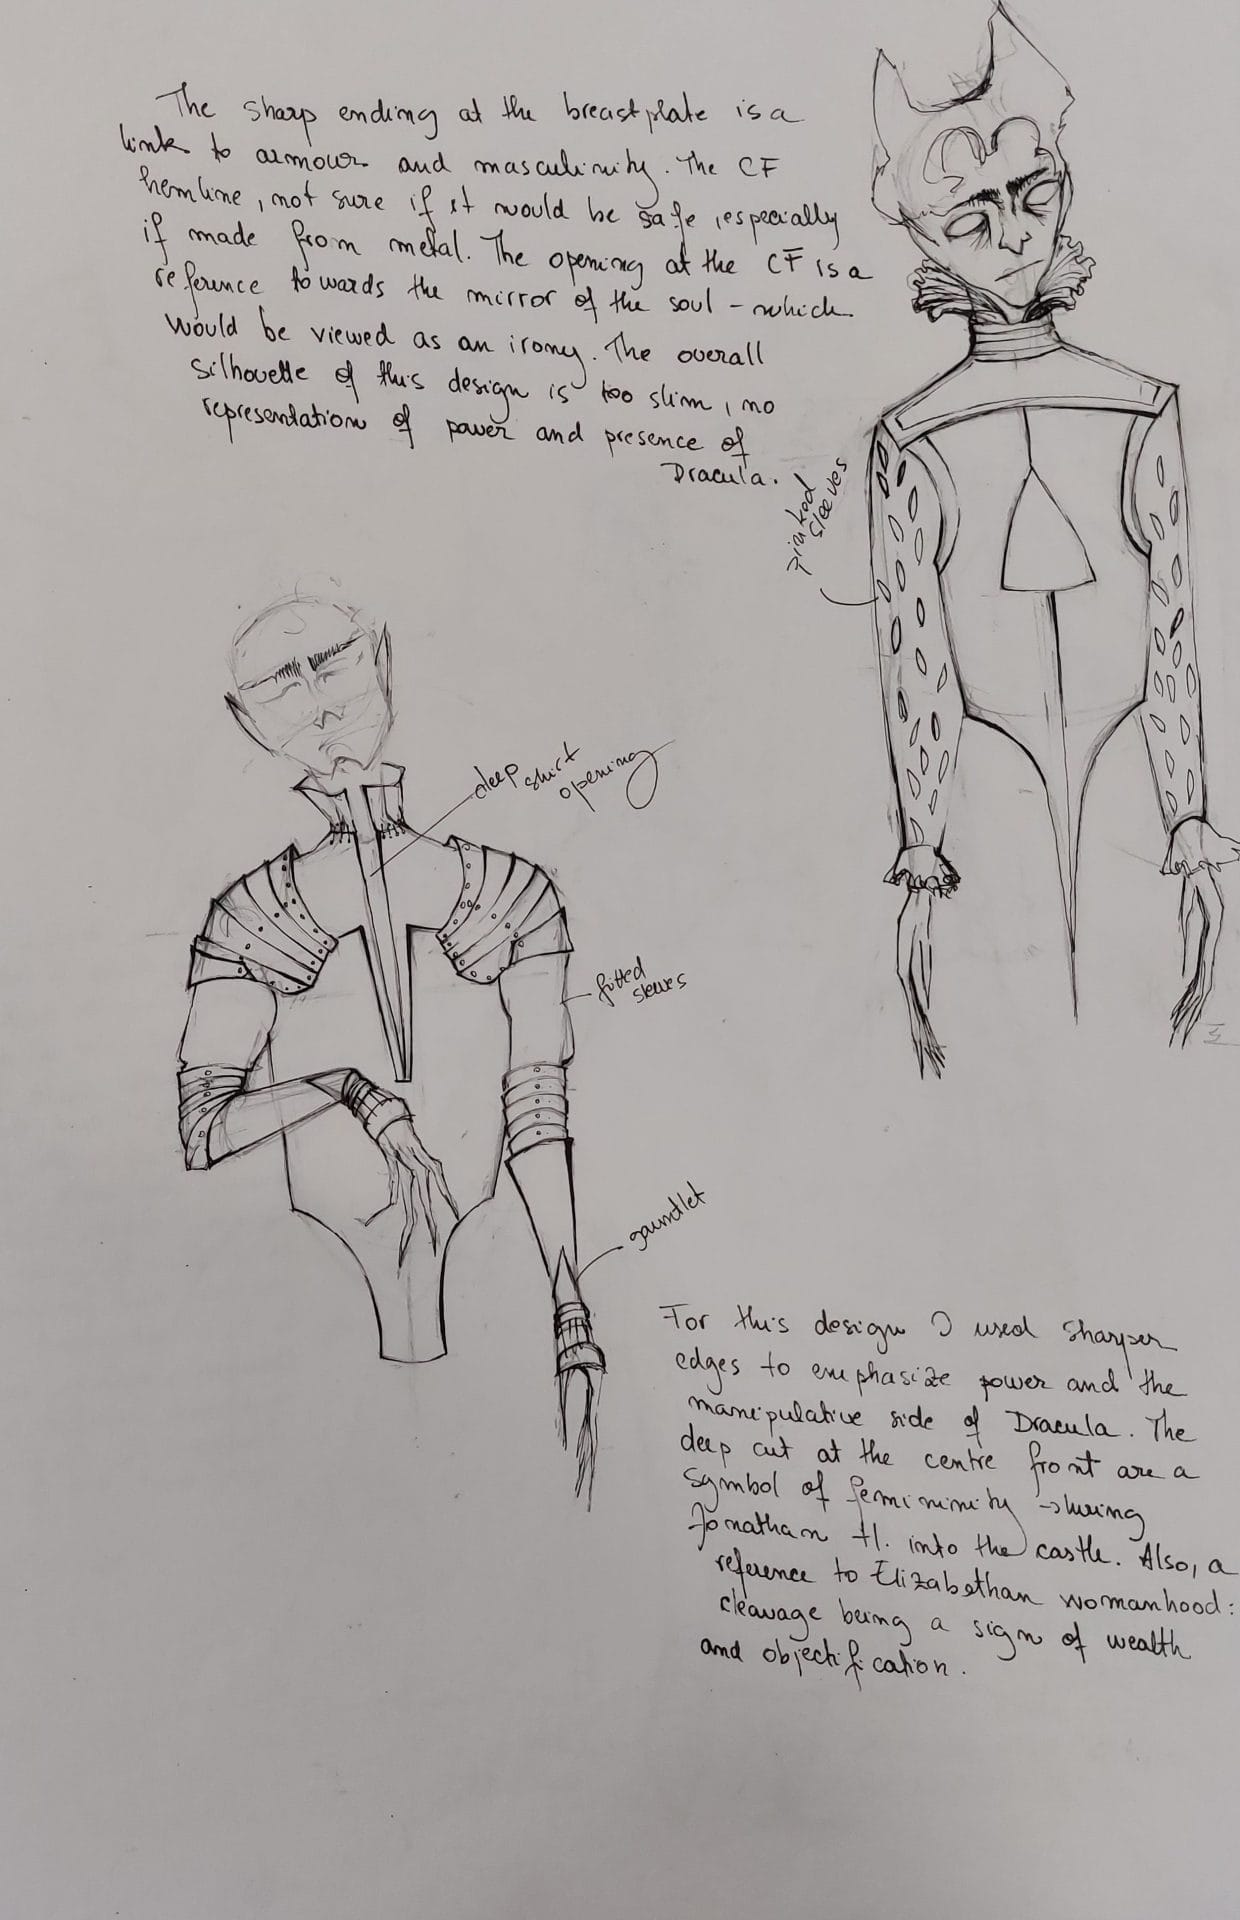 The sharp ending at the breastplate is a
link to armour and masculinity. The CF
hemline, not sure if it would be safe, especially
if made from metal. The opening at the CF is a
reference towards the mirror of the soul - which
would be viewed as an irony. The overall
silhouette of this design is too slim, no
representation of power and presence of
Dracula.
pinked
sleeves
deep shirt
opening
fitted
sleeves
gauntlet
For this design I used sharper
edges to emphasize power and the
manipulative side of Dracula. The
deep cut at the centre front are a
symbol of femininity → luring
Jonathan H. into the castle. Also, a
reference to Elizabethan womanhood:
cleavage being a sign of wealth
and objectification.